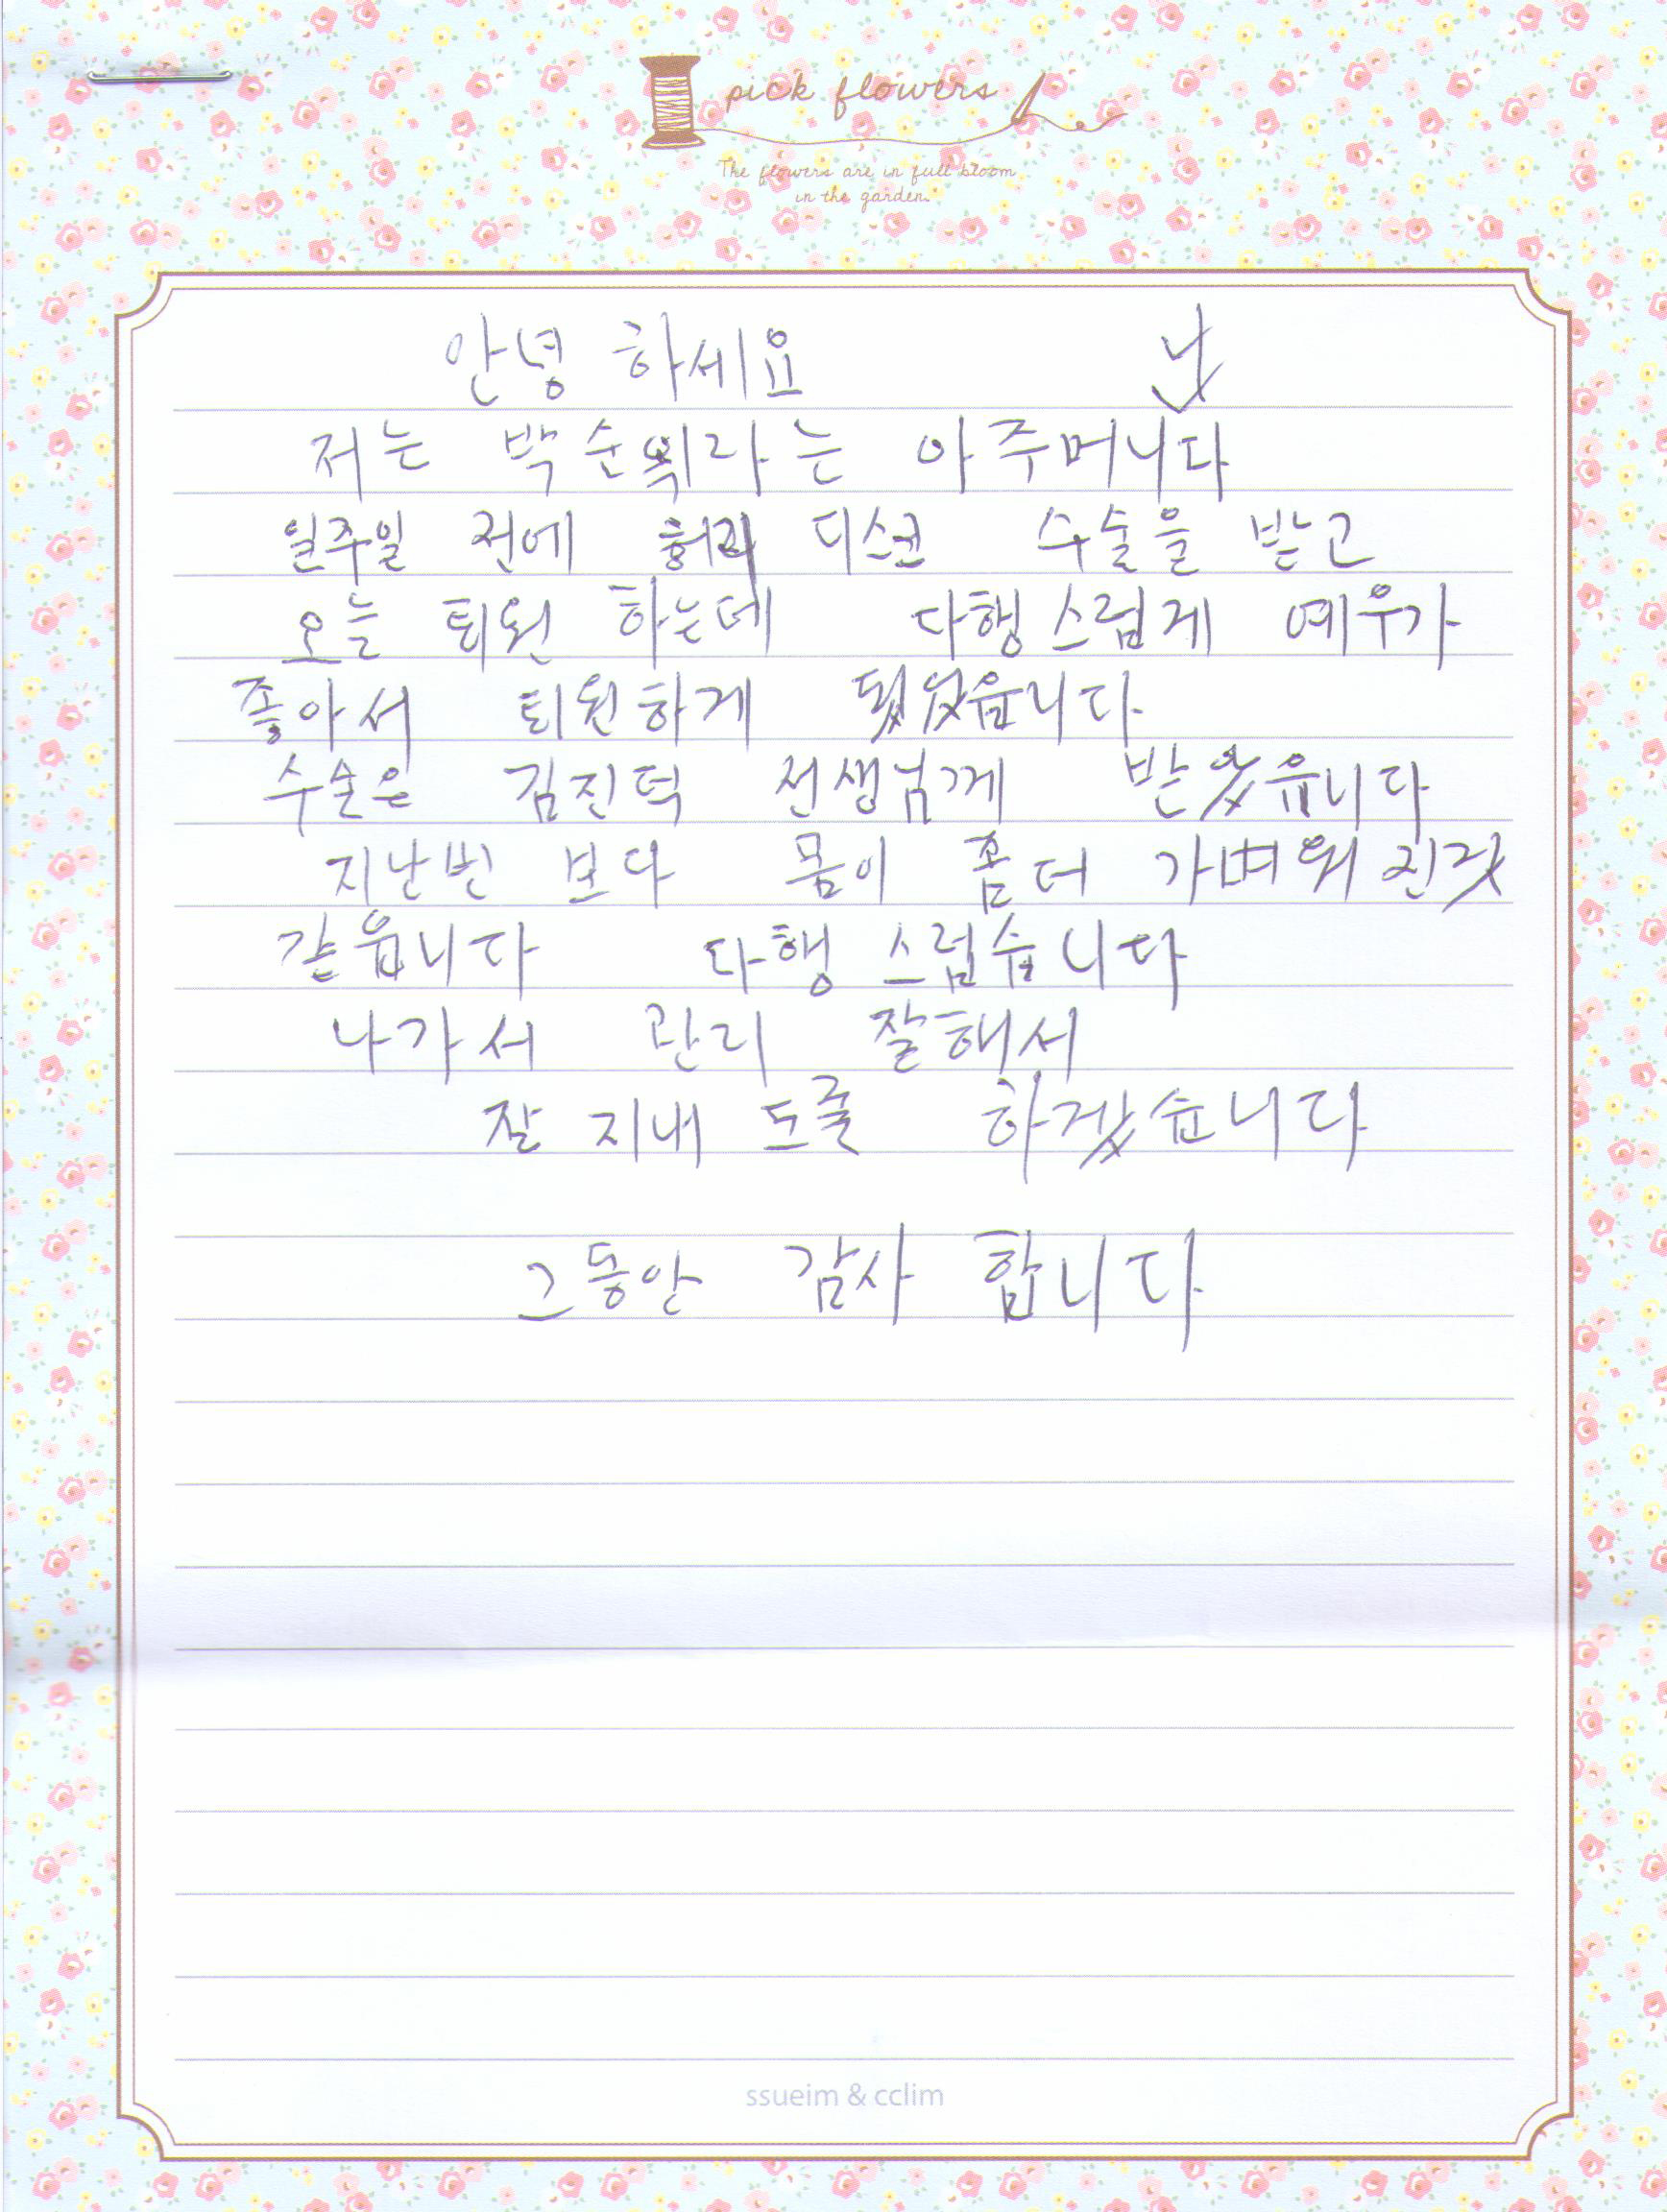 pick flowers
The flowers are in full bloom
in the garden.
안녕 하세요 낫
저는 아주머니다
일주일 전에 허리 디스크 수술을 받고
오늘 퇴원 하는데 다행스럽게 예우가
좋아서 퇴원하게 됬었읍니다
수술은 김진덕 선생님께 받았읍니다
지난번 보다 몸이 좀더 가벼워 진것
같읍니다 다행 스럽습니다
나가서 관리 잘해서
잘 지내 도록 하겠습니다
그동안 감사 합니다
ssueim & cclim